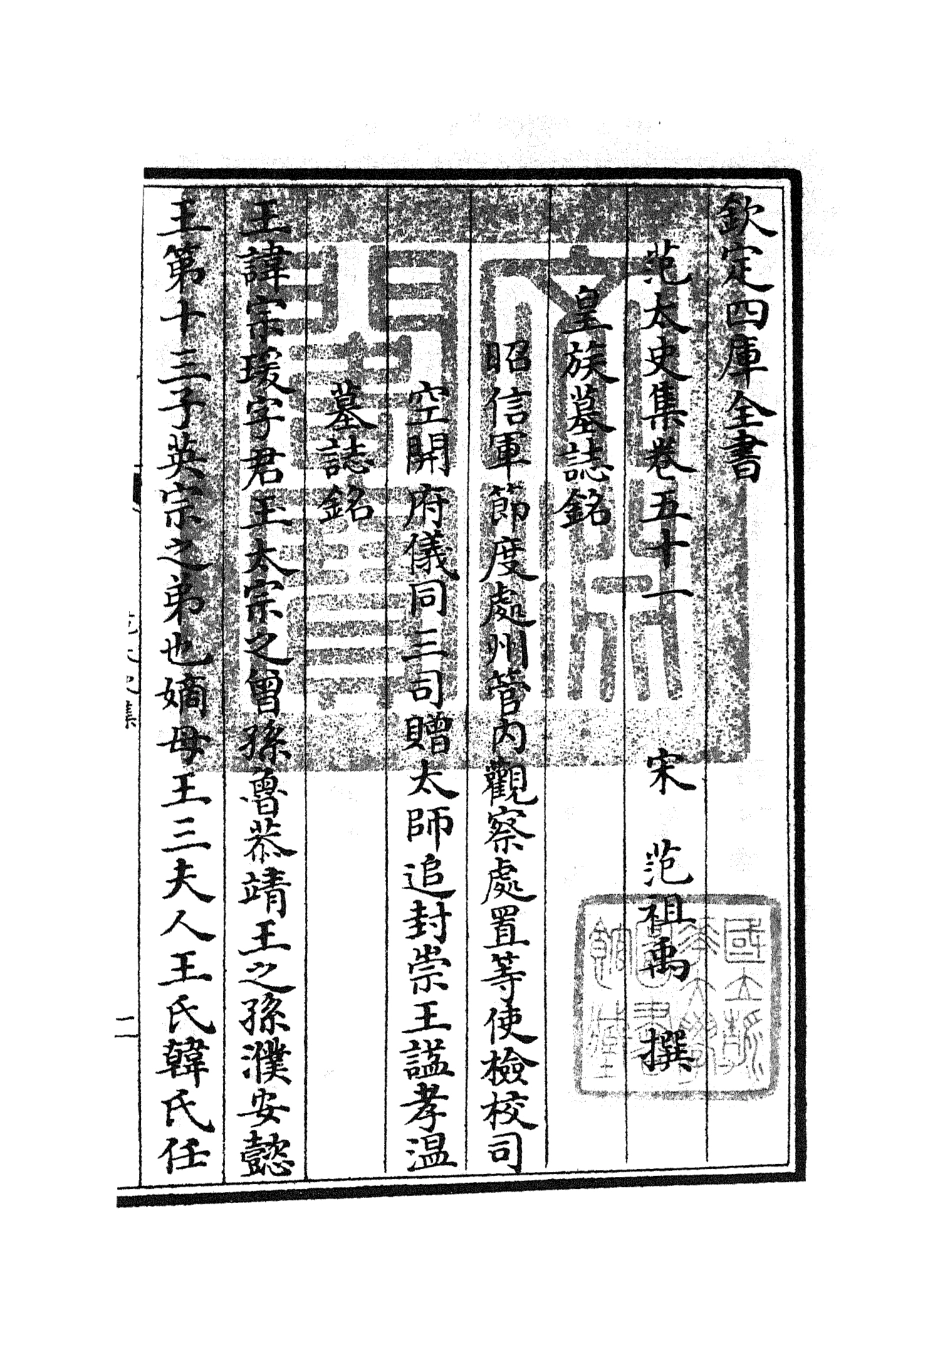 欽定四庫全書
范太史集卷五十一 宋 范祖禹 撰
皇族墓誌銘
昭信軍節度處州管内觀察處置等使檢校司
空開府儀同三司贈太師追封崇王諡孝温
墓誌銘
王諱宗瑗字君王太宗之曾孫魯恭靖王之孫濮安懿
王第十三子英宗之弟也嫡母王三夫人王氏韓氏任
范太史集
二
文淵閣寶